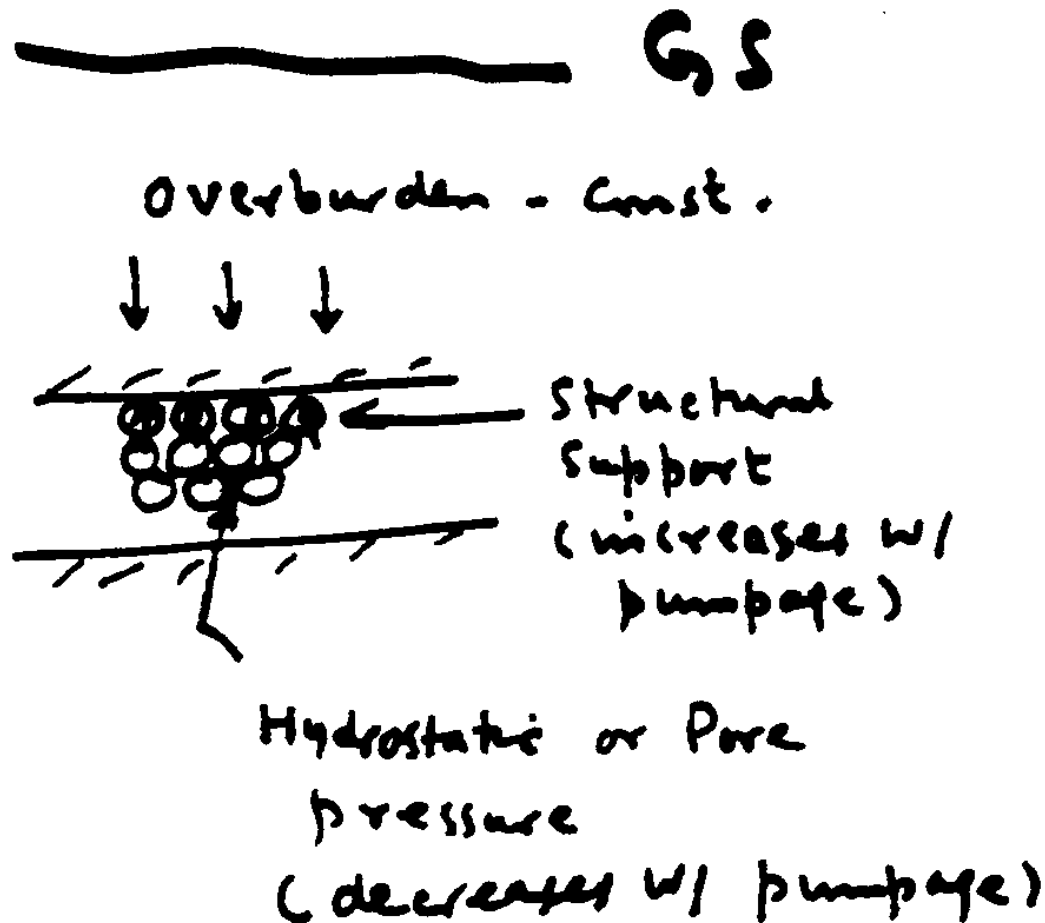 GS
Overburden - Const.
Structural
Support
(increases w/
pumpage)
Hydrostatic or Pore
pressure
(decreases w/ pumpage)